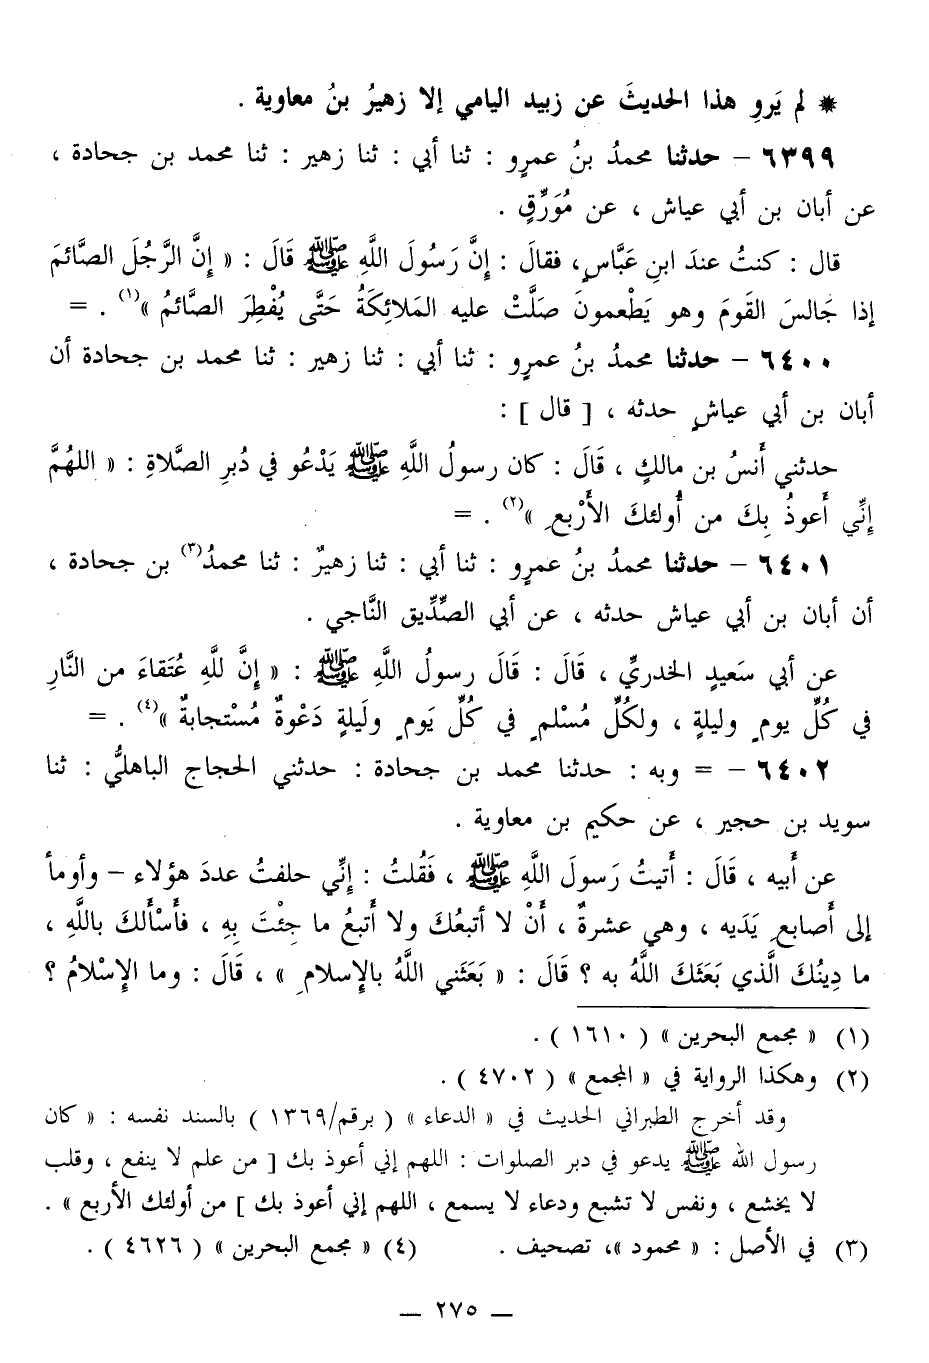 ✵ لم يَروِ هذا الحديثَ عن زبيد اليامي إلا زهيرُ بنُ معاوية .
٦٣٩٩ – حدثنا محمدُ بنُ عمرٍو : ثنا أبي : ثنا زهير : ثنا محمد بن جحادة ،
عن أبان بن أبي عياش ، عن مُوَرِّقٍ .
قال : كنتُ عندَ ابنِ عَبَّاسٍ، فقالَ : إِنَّ رَسُولَ اللَّهِ ﷺ قَالَ : « إِنَّ الرَّجُلَ الصَّائمَ
إذا جَالسَ القَومَ وهو يَطْعمونَ صَلَّتْ عليه المَلائِكَةُ حَتَّى يُفْطِرَ الصَّائمُ »(١) . =
٦٤٠٠ – حدثنا محمدُ بنُ عمرٍو : ثنا أبي : ثنا زهير : ثنا محمد بن جحادة أن
أبان بن أبي عياشٍ حدثه ، [ قال ] :
حدثني أَنسُ بن مالكٍ ، قَالَ : كان رسولُ اللَّهِ ﷺ يَدْعُو في دُبرِ الصَّلاةِ : « اللهُمَّ
إنِّي أَعوذُ بِكَ من أُولئكَ الأَرْبعِ »(٢) . =
٦٤٠١ – حدثنا محمدُ بنُ عمرٍو : ثنا أبي : ثنا زهيرٌ : ثنا محمدُ(٣) بن جحادة ،
أن أبان بن أبي عياش حدثه ، عن أبي الصِّدِّيق النَّاجي .
عن أبي سَعيدٍ الخدريِّ ، قَالَ : قَالَ رسولُ اللَّهِ ﷺ : « إِنَّ للَّهِ عُتَقاءَ من النَّارِ
في كُلِّ يومٍ وليلةٍ ، ولكُلِّ مُسْلمٍ في كُلِّ يَومٍ ولَيلةٍ دَعْوةٌ مُسْتجابةٌ »(٤) . =
٦٤٠٢ – = وبه : حدثنا محمد بن جحادة : حدثني الحجاج الباهليُّ : ثنا
سويد بن حجير ، عن حكيم بن معاوية .
عن أَبيه ، قَالَ : أَتيتُ رَسولَ اللَّهِ ﷺ ، فَقُلتُ : إِنِّي حلفتُ عددَ هؤلاء – وأومأ
إلى أَصابعِ يَدَيه ، وهي عشرةٌ ، أَنْ لا أتبعُكَ ولا أَتبعُ ما جِئْتَ بِهِ ، فأَسْأَلكَ باللَّهِ ،
ما دِينُكَ الَّذي بَعَثَكَ اللَّهُ به ؟ قَالَ : « بَعَثَني اللَّهُ بالإسلامِ » ، قَالَ : وما الإِسْلامُ ؟
(١) « مجمع البحرين » ( ١٦١٠ ) .
(٢) وهكذا الرواية في « المجمع » ( ٤٧٠٢ ) .
وقد أخرج الطبراني الحديث في « الدعاء » ( برقم/١٣٦٩ ) بالسند نفسه : « كان
رسول الله ﷺ يدعو في دبر الصلوات : اللهم إني أعوذ بك [ من علم لا ينفع ، وقلب
لا يخشع ، ونفس لا تشبع ودعاء لا يسمع ، اللهم إني أعوذ بك ] من أولئك الأربع » .
(٣) في الأصل : « محمود »، تصحيف . (٤) « مجمع البحرين » ( ٤٦٢٦ ) .
— ٢٧٥ —